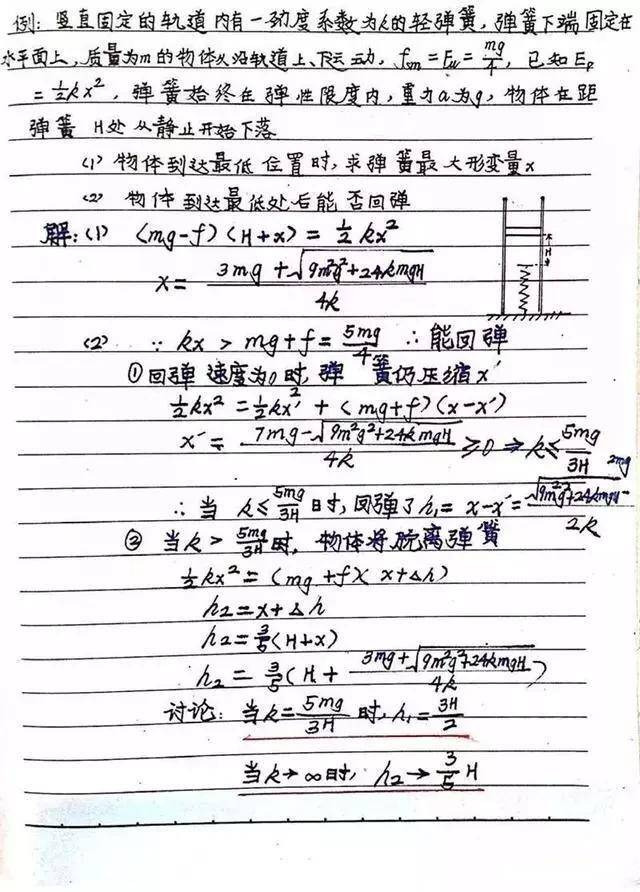 例: 竖直固定的轨道内有一劲度系数为k的轻弹簧, 弹簧下端固定在
水平面上, 质量为m的物体从沿轨道上、下运动, fsm = Fμ = mg/4, 已知 Ep
= ½kx², 弹簧始终在弹性限度内, 重力a为g, 物体在距
弹簧 H处 从静止开始下落
(1) 物体到达最低位置时, 求弹簧最大形变量x
(2) 物体到达最低处后能否回弹
解: (1) (mg-f)(H+x) = ½kx²
x = (3mg + √(9m²g²+24kmgH))/4k
H
(2) ∵ kx > mg+f = 5mg/4 ∴ 能回弹
①回弹速度为0时, 弹簧仍压缩x′
½kx² = ½kx′² + (mg+f)(x-x′)
x′ = (7mg-√(9m²g²+24kmgH))/4k ≥0 ⇒ k≤5mg/3H
∴ 当 k≤5mg/3H 时, 回弹了h₁ = x-x′ = (√(9m²g²+24kmgH)-2mg)/2k
② 当k > 5mg/3H时, 物体将脱离弹簧
½kx² = (mg+f)(x+Δh)
h₂ = x+Δh
h₂ = 3/5(H+x)
h₂ = 3/5(H + (3mg+√(9m²g²+24kmgH))/4k)
讨论: 当k=5mg/3H 时, h₁ = 3H/2
当k→∞时, h₂→3/5 H